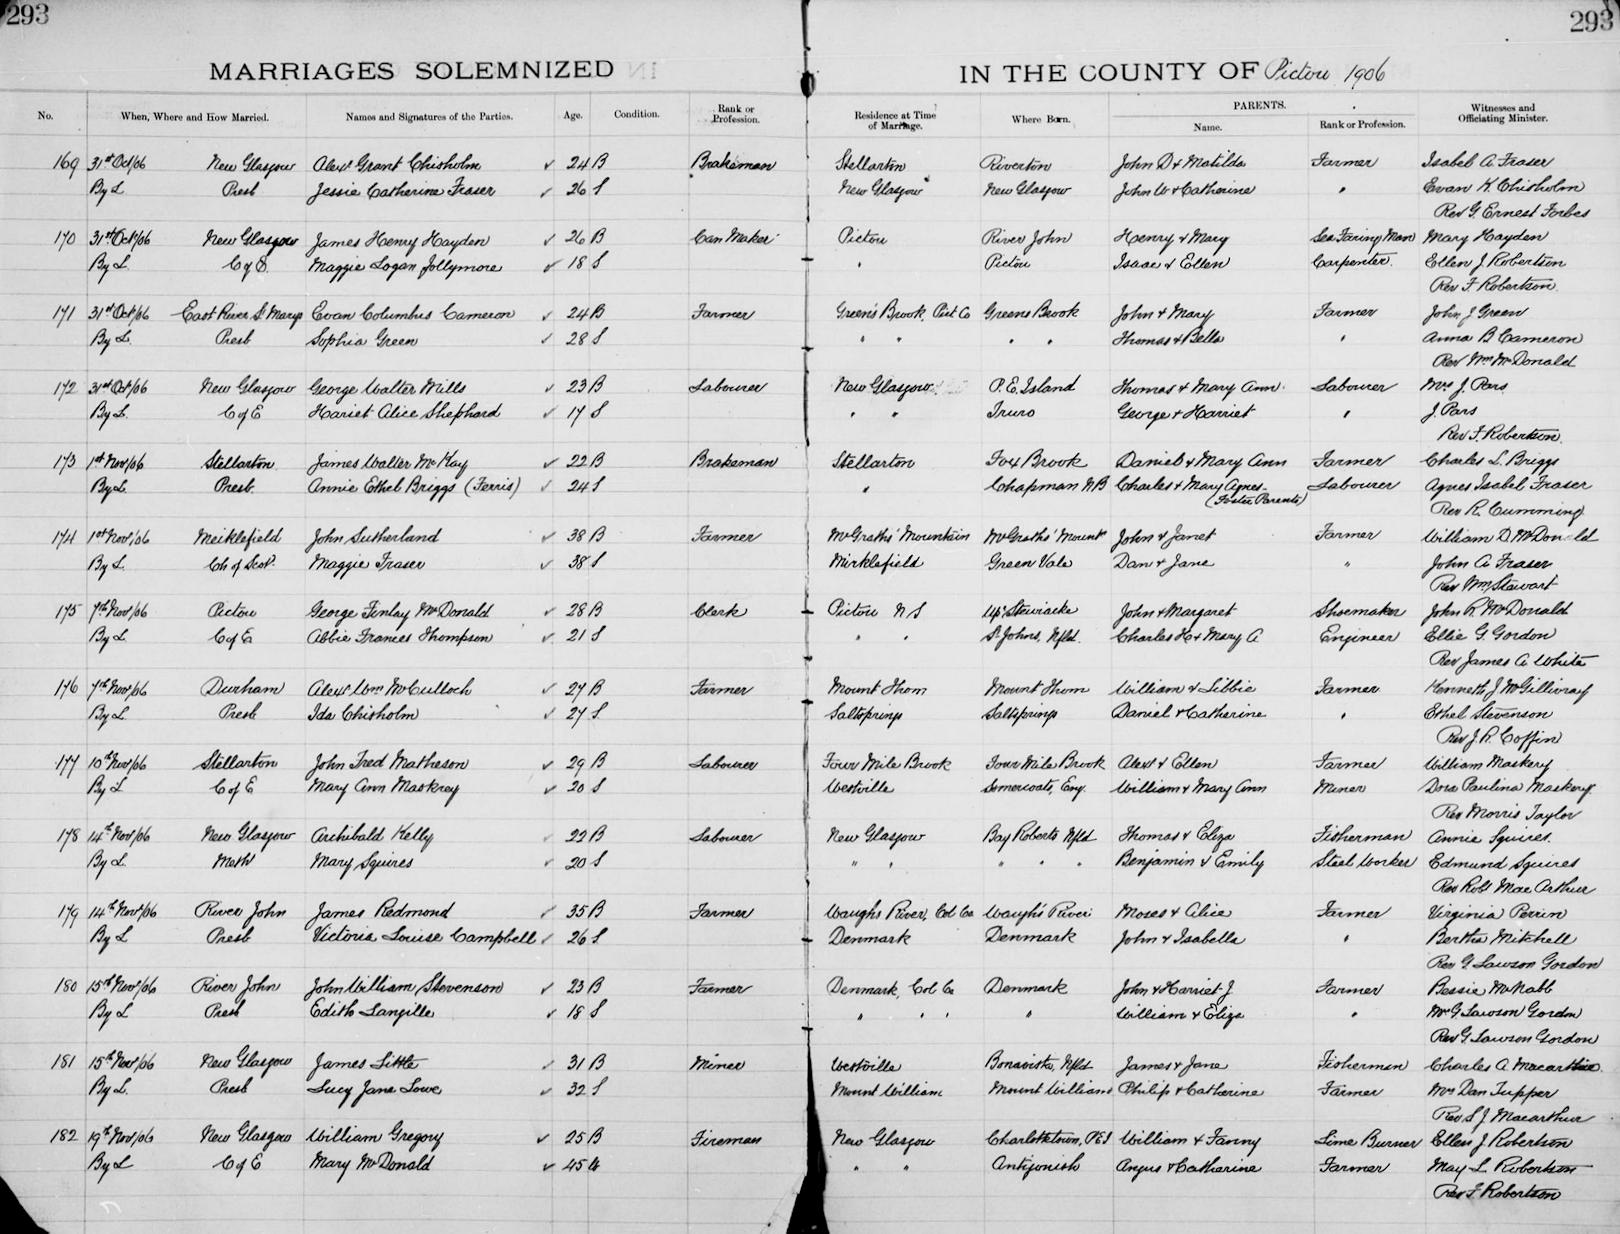 293
293
MARRIAGES SOLEMNIZED
IN THE COUNTY OF Pictou 1906
No. When, Where and How Married. Names and Signatures of the Parties. Age. Condition. Rank or Profession. Residence at Time of Marriage. Where Born. PARENTS. Name. Rank or Profession. Witnesses and Officiating Minister.
169 31st Oct/06 New Glasgow Alexr Grant Chisholm 24 B Brakeman Stellarton Riverton John D & Matilda Farmer Isabel A Fraser
By L Presb Jessie Catherine Fraser 26 S New Glasgow New Glasgow John W & Catherine " Evan K. Chisholm
Rev G. Ernest Forbes
170 31st Oct/06 New Glasgow James Henry Hayden 26 B Can Maker Pictou River John Henry & Mary Sea Faring Man Mary Hayden
By L. C of E. Maggie Logan Jollymore 18 S " Pictou Isaac & Ellen Carpenter. Ellen J Robertson
Rev F. Robertson.
171 31st Oct/06 East River St Marys Evan Columbus Cameron 24 B Farmer Green's Brook, Pict Co Greens Brook John & Mary Farmer John J Green
By L. Presb Sophia Green 28 S " " " " Thomas & Bella " Anna B Cameron
Rev Wm McDonald
172 31st Oct/06 New Glasgow George Walter Mills 23 B Labourer New Glasgow P.E. Island Thomas & Mary Ann. Labourer Mrs J. Pars
By L. C of E Hariet Alice Shephard 17 S " " Truro George & Harriet " J. Pars
Rev F. Robertson
173 1st Nov/06 Stellarton James Walter McKay 22 B Brakeman Stellarton Fox Brook Daniel & Mary Ann Farmer Charles L. Briggs
By L. Presb. Annie Ethel Briggs (Ferris) 24 S " Chapman N B Charles & Mary Agnes Labourer Agnes Isabel Fraser
(Foster Parents)
Rev R. Cumming
174 1st Nov/06 Meiklefield John Sutherland 38 B Farmer McGraths' Mountain McGraths' Mount John & Janet Farmer William D. McDonald
By L. Ch of Scot. Maggie Fraser 38 S Mirklefield Green Vale Dan & Jane " John A Fraser
Rev Wm Stewart
175 7th Nov/06 Pictou George Finlay McDonald 28 B Clerk Pictou N S Up. Stewiacke John & Margaret Shoemaker John R McDonald
By L C of E Abbie Frances Thompson 21 S " " St Johns, Nfld. Charles H & Mary A Engineer Ellie G. Gordon
Rev James A White
176 7th Nov/06 Durham Alexr Wm McCulloch 27 B Farmer Mount Thom Mount Thom William & Libbie Farmer Kenneth J McGillivray
By L Presb Ida Chisholm 27 S Saltsprings Saltsprings Daniel & Catherine " Ethel Stevenson
Rev J. R. Coffin
177 10th Nov/06 Stellarton John Fred Matheson 29 B Labourer Four Mile Brook Four Mile Brook Alexr & Ellen Farmer William Maskery
By L C of E Mary Ann Maskrey 20 S Westville Somercoats, Eng. William & Mary Ann Miner Dora Paulina Maskery
Rev Morris Taylor
178 14th Nov/06 New Glasgow Archibald Kelly 22 B Labourer New Glasgow Bay Roberts Nfld Thomas & Eliza Fisherman Annie Squires.
By L Meth Mary Squires 20 S " " " " " Benjamin & Emily Steel Worker Edmund Squires
Rev Robt Mac Arthur
179 14th Nov/06 River John James Redmond 35 B Farmer Waughs River, Col Co Waugh's River Moses & Alice Farmer Virginia Perrin
By L Presb Victoria Louise Campbell 26 S Denmark Denmark John & Isabella " Bertha Mitchell
Rev G Lawson Gordon
180 15th Nov/06 River John John William Stevenson 23 B Farmer Denmark, Col Co Denmark John & Harriet J Farmer Bessie McNabb
By L Presb Edith Langille 18 S " " " " William & Eliza " Mrs G Lawson Gordon
Rev G Lawson Gordon
181 15th Nov/06 New Glasgow James Little 31 B Miner Westville Bonavista, Nfld James & Jane Fisherman Charles A. Macarthur
By L. Presb Lucy Jane Lowe 32 S Mount William Mount William Philip & Catherine Farmer Mrs Dan Tupper
Rev S J Macarthur
182 19th Nov/06 New Glasgow William Gregory 25 B Fireman New Glasgow Charlottetown, PEI William & Fanny Lime Burner Ellen J Robertson
By L C of E Mary McDonald 45 W " " Antigonish Angus & Catharine Farmer May L Robertson
Rev F Robertson